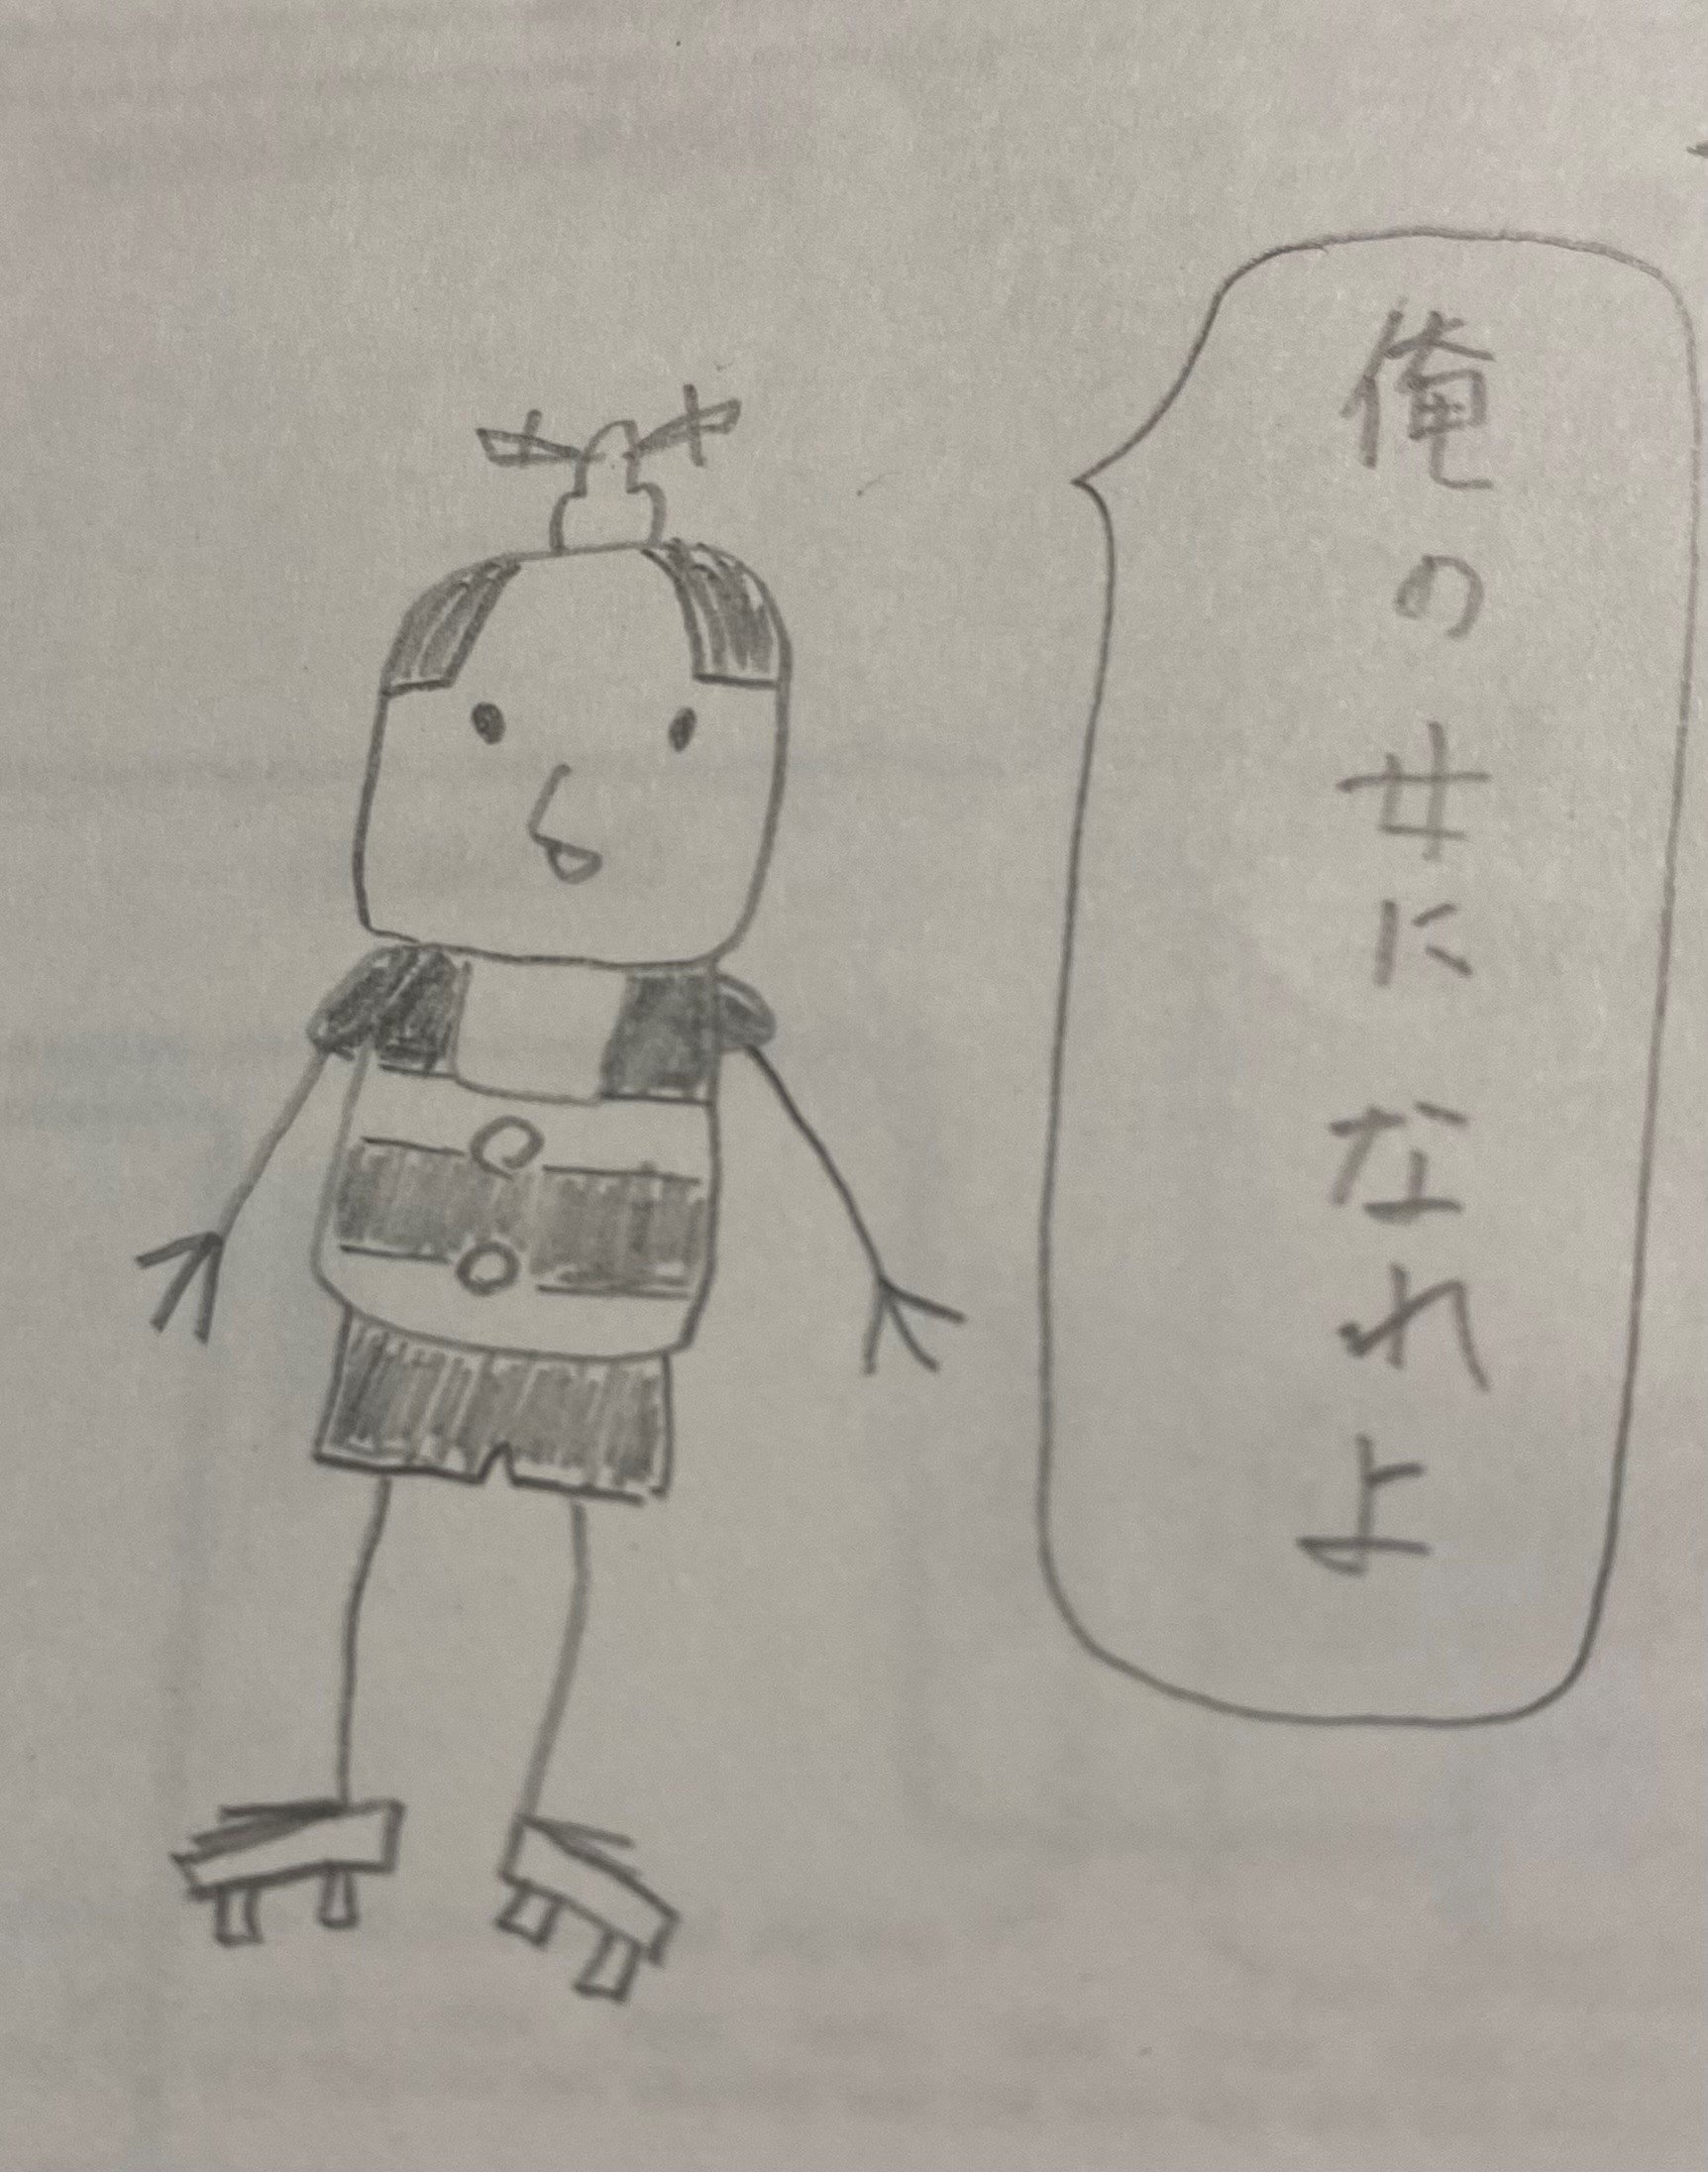 俺の女になれよ